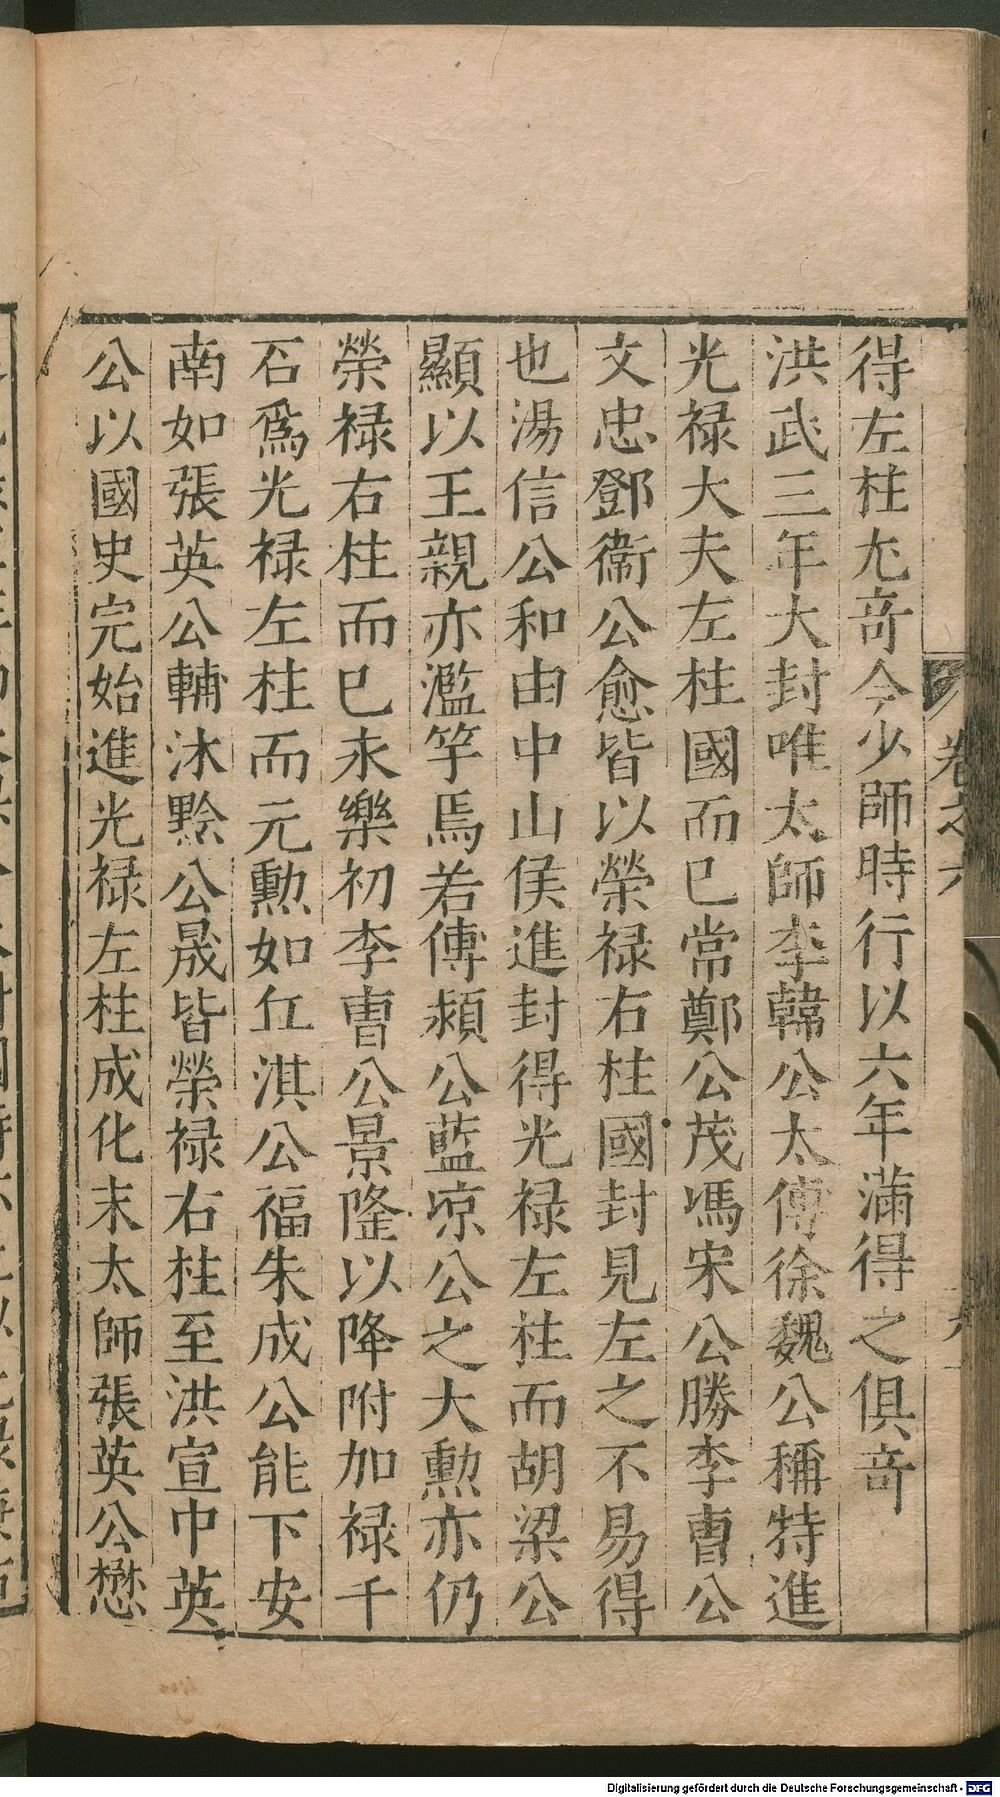 卷之六
得左柱尤奇今少師時行以六年滿得之俱奇
洪武三年大封唯太師李韓公太傅徐魏公稱特進
光禄大夫左柱國而已常鄭公茂馮宋公勝李曹公
文忠鄧衞公愈皆以榮禄右柱國封見左之不易得
也湯信公和由中山侯進封得光禄左柱而胡梁公
顯以王親亦濫竽焉若傅潁公藍凉公之大勲亦仍
榮禄右柱而已永樂初李曹公景隆以降附加禄千
石爲光禄左柱而元勲如丘淇公福朱成公能下安
南如張英公輔沐黔公晟皆榮禄右柱至洪宣中英
公以國史完始進光禄左柱成化末太師張英公懋
Digitalisierung gefördert durch die Deutsche Forschungsgemeinschaft - DFG